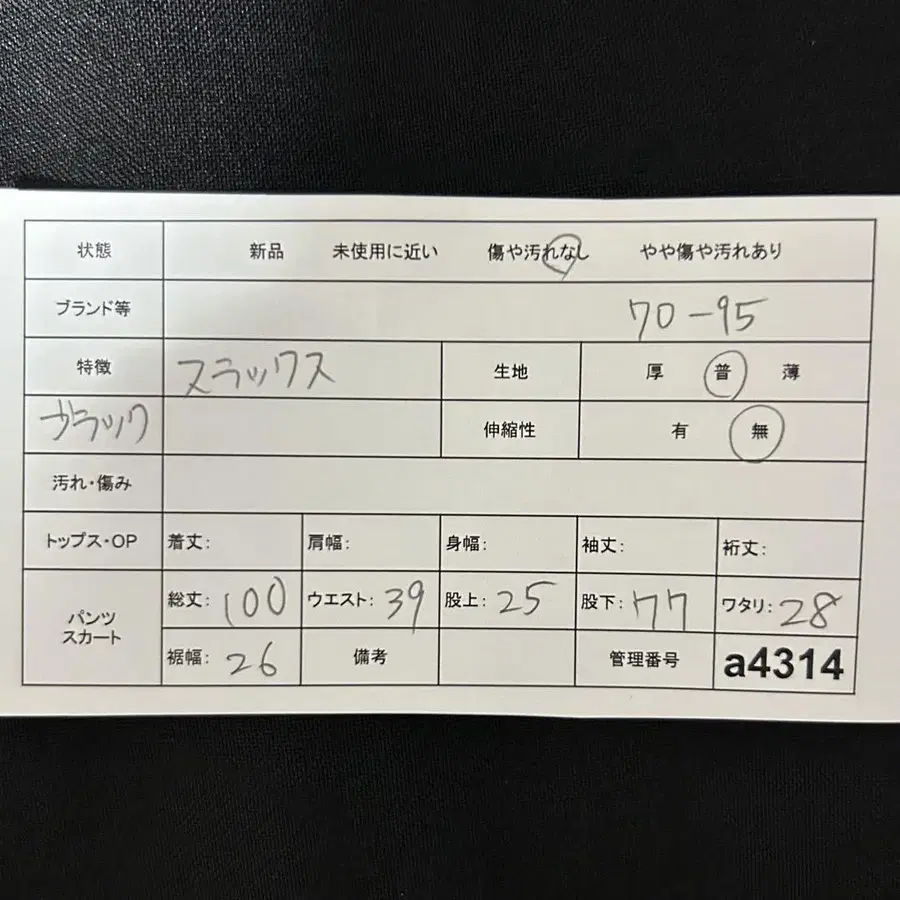 状態 新品 未使用に近い 傷や汚れなし やや傷や汚れあり
ブランド等 70-95
特徴 スラックス 生地 厚 普 薄
ブラック 伸縮性 有 無
汚れ・傷み
トップス・OP 着丈: 肩幅: 身幅: 袖丈: 裄丈:
パンツ スカート 総丈: 100 ウエスト: 39 股上: 25 股下: 77 ワタリ: 28
裾幅: 26 備考 管理番号 a4314